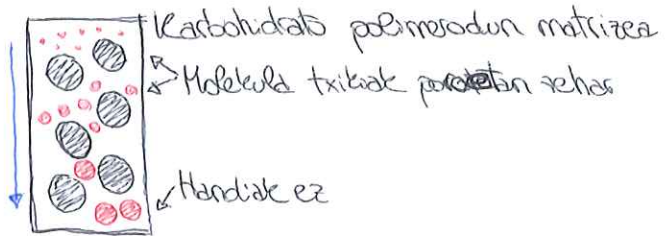 Karbohidrato polimerodun matrizea
Molekula txikiak poroetan zehar
Handiak ez